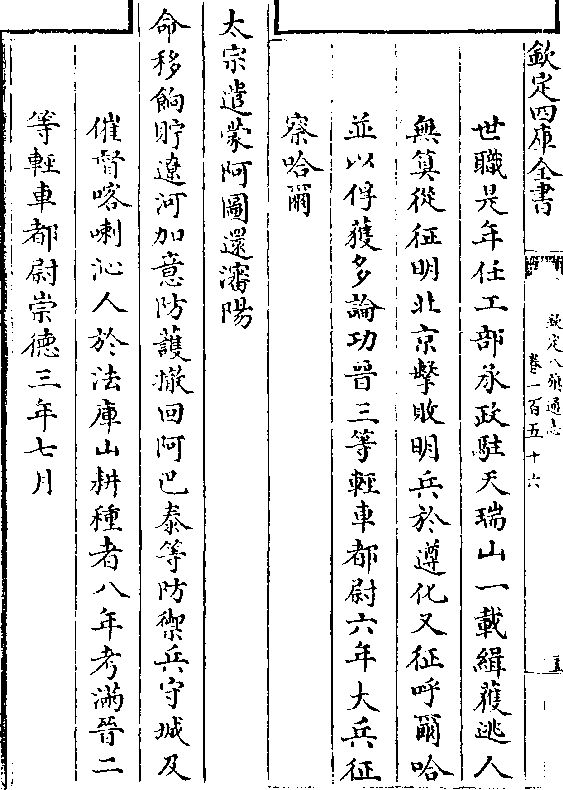 欽定四庫全書
欽定八旗通志
卷一百五十六
世職是年任工部承政駐天瑞山一載緝獲逃人
無算從征明北京擊敗明兵於遵化又征呼爾哈
並以俘獲多論功晉三等輕車都尉六年大兵征
察哈爾
太宗遣蒙阿圖還瀋陽
命移餉貯遼河加意防護撤回阿巴泰等防禦兵守城及
催督喀喇沁人於法庫山耕種者八年考滿晉二
等輕車都尉崇德三年七月